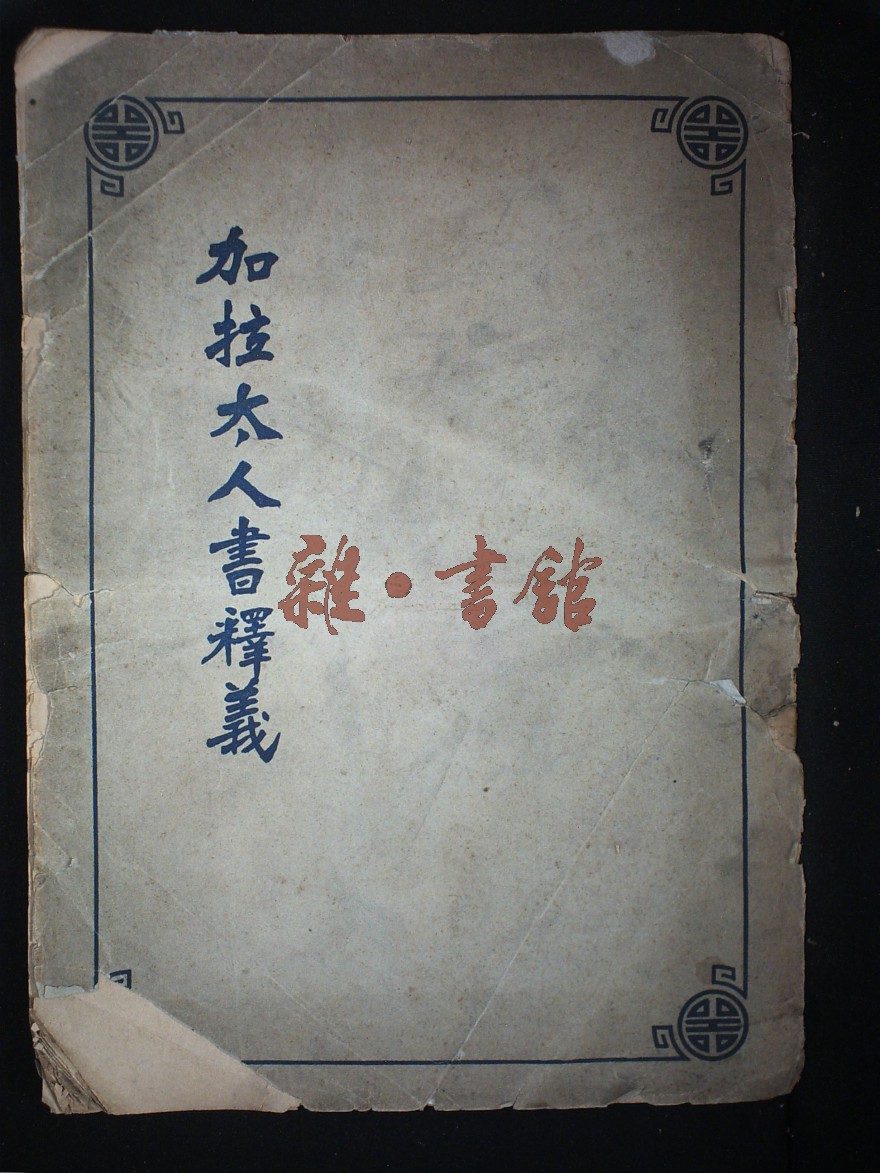 加拉太人書釋義
雜·書館